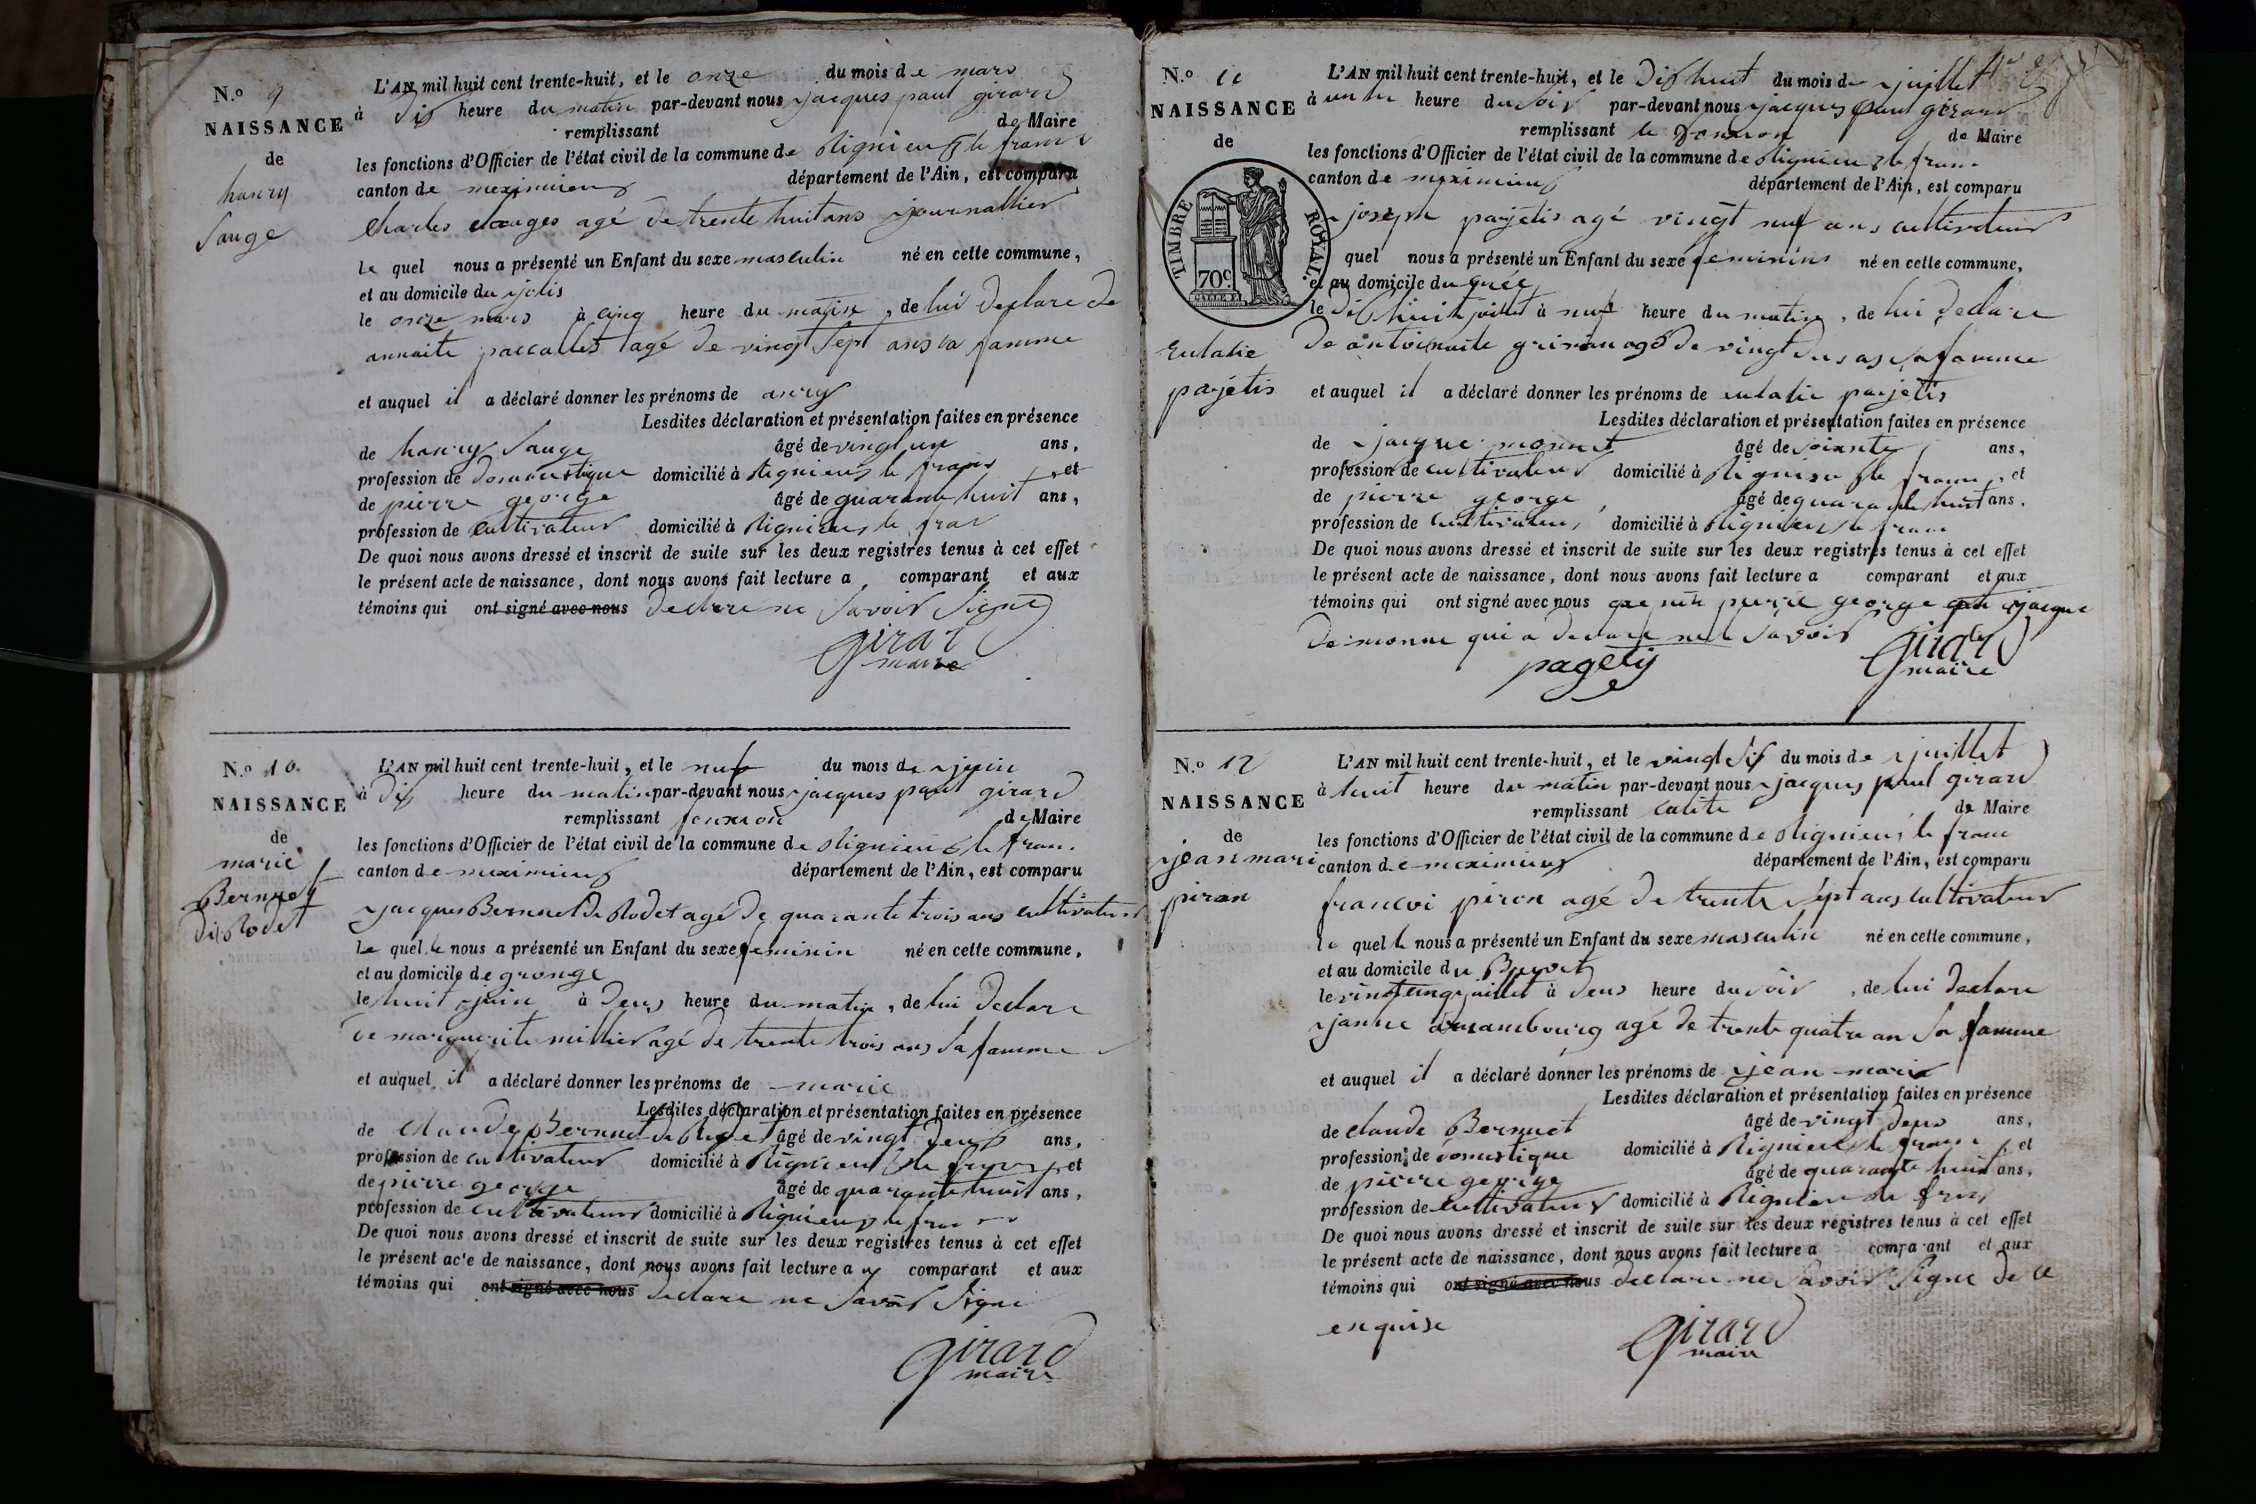 N.o 9
NAISSANCE
de
hanry
Sauge
L'AN mil huit cent trente-huit, et le onze du mois de mars
à dix heure du matin par-devant nous jacques paul girard
remplissant de Maire
les fonctions d'Officier de l'état civil de la commune de Rignieux le franc
canton de meximieux département de l'Ain, est comparu
Charles sauges agé de trente huit ans journallier
le quel nous a présenté un Enfant du sexe masculin né en cette commune,
et au domicile du
le onze mars à cinq heure du matin, de lui declare de
annaite agé de vingt sept ans sa famme
et auquel il a déclaré donner les prénoms de anry
Lesdites déclaration et présentation faites en présence
de hanry Sauge âgé de vingt un ans,
profession de domoustique domicilié à Rignieux le franc, et
de pierre george âgé de quarante huit ans,
profession de cultivateur domicilié à Rignieux le fran
De quoi nous avons dressé et inscrit de suite sur les deux registres tenus à cet effet
le présent acte de naissance, dont nous avons fait lecture a comparant et aux
témoins qui ont signé avec nous declare ne savoir signé
girard
maire
N.o 10
NAISSANCE
de
marie
Bernuet
di Rodet
L'AN mil huit cent trente-huit, et le neuf du mois de juin
à dix heure du matin par-devant nous jacques paul girard
remplissant fonxion de Maire
les fonctions d'Officier de l'état civil de la commune de Rignieux le franc
canton de meximieux département de l'Ain, est comparu
jacques Bernuet di Rodet agé de quarante trois ans cultivateur
le quel le nous a présenté un Enfant du sexe feminin né en cette commune,
et au domicile de grange
le huit juin à deux heure du matin, de lui declare
de marguerite millier agé de trente trois ans sa famme
et auquel il a déclaré donner les prénoms de marie
Lesdites déclaration et présentation faites en présence
de claude Bernuet di Rodet âgé de vingt deux ans,
profession de cultivateur domicilié à Rignieux le franc, et
de pierre george âgé de quarante huit ans,
profession de cultivateur domicilié à Rignieux le franc
De quoi nous avons dressé et inscrit de suite sur les deux registres tenus à cet effet
le présent acte de naissance, dont nous avons fait lecture a comparant et aux
témoins qui ont signé avec nous declare ne savoir signe
girard
maire
N.o 11
NAISSANCE
de
TIMBRE ROYAL.
70c.
Eulalie
parjetis
L'AN mil huit cent trente-huit, et le dix huit du mois de juillet
à heure du soir par-devant nous jacques paul girard
remplissant le fonxion de Maire
les fonctions d'Officier de l'état civil de la commune de Rignieux le franc
canton de meximieux département de l'Ain, est comparu
joseph parjetis agé vingt neuf ans cultivateur
quel nous a présenté un Enfant du sexe feminins né en cette commune,
et au domicile du
le dix huit juillet à neuf heure du matin, de lui declare
de antoinaite agé de vingt deus as sa famme
et auquel il a déclaré donner les prénoms de eulalie parjetis
Lesdites déclaration et présentation faites en présence
de jacque monnet âgé de soixante ans,
profession de cultivateur domicilié à Rignieux le franc, et
de pierre george âgé de quarante huit ans,
profession de cultivateur domicilié à Rignieux le franc
De quoi nous avons dressé et inscrit de suite sur les deux registres tenus à cet effet
le présent acte de naissance, dont nous avons fait lecture a comparant et aux
témoins qui ont signé avec nous pierre george jacque
de monne qui a declaré ne savoir
pagety
girard
maire
N.o 12
NAISSANCE
de
jean mari
piron
L'AN mil huit cent trente-huit, et le vingt six du mois de juillet
à huit heure du matin par-devant nous jacques paul girard
remplissant de Maire
les fonctions d'Officier de l'état civil de la commune de Rignieux le franc
canton de meximieux département de l'Ain, est comparu
francoi piron agé de trente sept ans cultivateur
le quel le nous a présenté un Enfant du sexe masculin né en cette commune,
et au domicile du
le vingt cinq juillet à deus heure du soir, de lui declare
janne agé de trente quatre an sa famme
et auquel il a déclaré donner les prénoms de jean marie
Lesdites déclaration et présentation faites en présence
de claude Bernuet âgé de vingt deux ans,
profession de domestique domicilié à Rignieux le franc, et
de pierre george âgé de quarante huit ans,
profession de cultivateur domicilié à Rignieux le franc
De quoi nous avons dressé et inscrit de suite sur les deux registres tenus à cet effet
le présent acte de naissance, dont nous avons fait lecture a comparant et aux
témoins qui ont signé avec nous declare ne savoir signe de ce
enquise
girard
maire